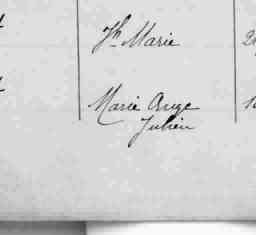 Jh Marie
Marie Ange
Julien